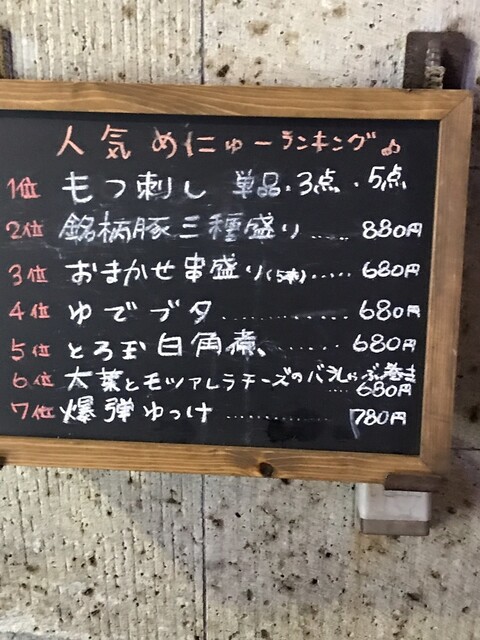 人気めにゅーランキング♪
1位 もつ刺し 単品・3点・5点
2位 銘柄豚三種盛り ..... 880円
3位 おまかせ串盛り(5本)..... 680円
4位 ゆでブタ ............ 680円
5位 とろ玉白角煮、 ........ 680円
6位 大葉とモツァレラチーズのバラしゃぶ巻き
..... 680円
7位 爆弾ゆっけ ............ 780円